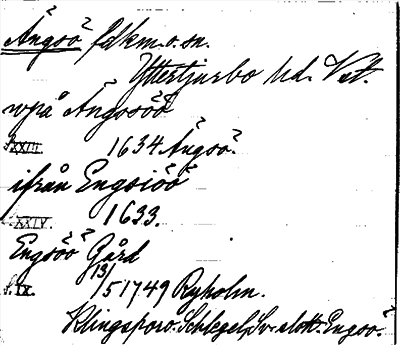 Ängsö fdkm.o.sn.
Yttertjurbo hd. Vst.
uppå Ängsöö
S.XXIII 1634 Ängsö.
ifrån Engsiöö
S.XXIV. 1633.
Engsöö Gård
S.IX. 13/5 1749 Ryholm.
Klingspor o. Schlegel, Sv. slott. Engsö.